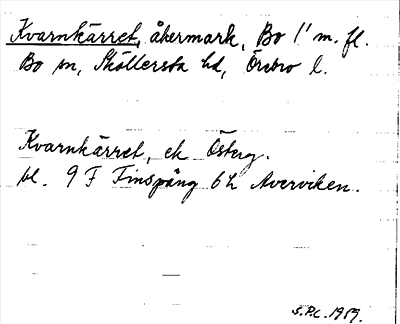 Kvarnkärret, åkermark, Bo 1¹ m. fl.
Bo sn, Sköllersta hd, Örebro l.
Kvarnkärret, ek Österg.
bl. 9 F Finspång 6 h Averviken.
S.P.C. 1959.